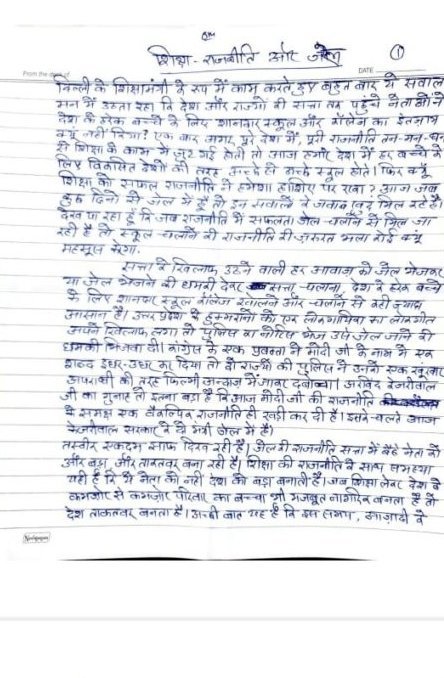 ॐ
शिक्षा - राजनीति और जेल
1
From the desk of
DATE
दिल्ली के शिक्षामंत्री के रूप में काम करते हुए बहुत बार ये सवाल
मन में उठता रहा कि देश और राज्यों की सत्ता तक पहुंचे नेताओं ने
देश के हरेक बच्चे के लिए शानदार स्कूल और कॉलेज का इंतज़ाम
क्यूं नहीं किया? एक बार अगर, पूरे देश में, पूरी राजनीति तन-मन-धन
से शिक्षा के काम में जुट गई होती तो आज हमारे देश में हर बच्चे के
लिए विकसित देशों की तरह अच्छे से अच्छे स्कूल होते। फिर क्यूं
शिक्षा को सफल राजनीति ने हमेशा हाशिए पर रखा? आज जब
कुछ दिनों से जेल में हूँ तो इन सवालों के जवाब खुद मिल रहे हैं।
देख पा रहा हूं कि जब राजनीति में सफलता जेल चलाने से मिल जा
रही है तो स्कूल चलाने की राजनीति की ज़रूरत भला कोई क्यूं
महसूस करेगा.
सत्ता के खिलाफ उठने वाली हर आवाज़ को जेल भेजकर
या जेल भेजने की धमकी देकर सत्ता चलाना, देश के हरेक बच्चे
के लिए शानदार स्कूल कॉलेज खोलने और चलाने से कहीं ज़्यादा
आसान है। उत्तर प्रदेश के हुक्मरानों को एक लोकगायिका का लोकगीत
अपने खिलाफ लगा तो पुलिस का नोटिस भेज उसे जेल जाने की
धमकी भिजवा दी। कांग्रेस के एक प्रवक्ता ने मोदी जी के नाम में एक
शब्द इधर-उधर कर दिया तो दो राज्यों की पुलिस ने उनको एक खूंखार
अपराधी की तरह फिल्मी अन्दाज में जाकर दबोचा। अरविंद केजरीवाल
जी का गुनाह तो इतना बड़ा है कि आज मोदी जी की राजनीति
के समक्ष एक वैकल्पिक राजनीति ही खड़ी कर दी है। इसके चलते आज
केजरीवाल सरकार के दो मंत्री जेल में हैं।
तस्वीर एकदम साफ दिख रही है। जेल की राजनीति सत्ता में बैठे नेता को
और बड़ा और ताकतवर बना रही है। शिक्षा की राजनीति के साथ समस्या
यही है कि ये नेता को नहीं देश को बड़ा बनाती है। जब शिक्षा लेकर देश के
कमज़ोर से कमज़ोर परिवार का बच्चा भी मजबूत नागरिक बनता है तो
देश ताकतवर बनता है। अच्छी बात यह है कि इस समय, आज़ादी के